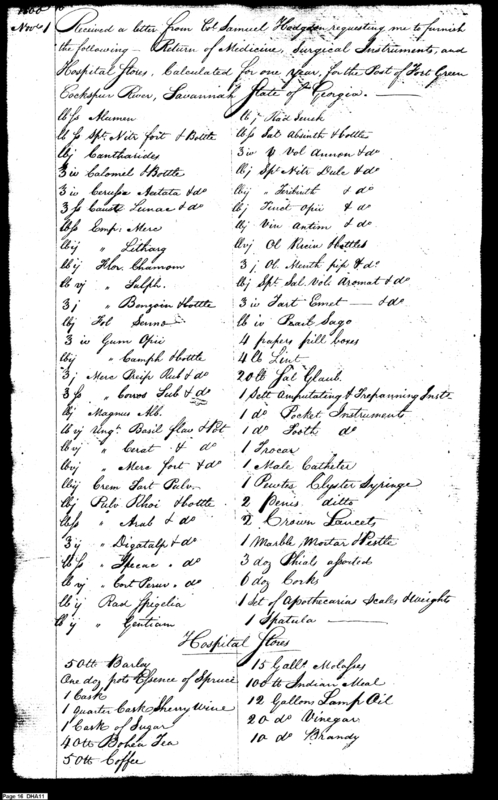 1800
Novr 1 Received a letter from Col Samuel Hodgdon requesting me to furnish
the following — Return of Medicine, Surgical Instruments, and
Hospital Stores, Calculated for one year, for the Post of Fort Green
Cockspur River, Savannah State of Georgia. —
lb ss Alumen
lb ss Spt Nitr fort & Bottle
lbj Cantharides
3 iv Calomel & Bottle
3 iv Cerussa Acetata & do
3 ss Caust Lunar & do
lbss Emp: Merc
lbij " Litharg
lb ij Flor. Chamom
lb vj " Sulph.
3 j " Benzoin & bottle
lbj Fol Senna
3 iv Gum Opii
lbij " Camph & bottle
3 j Merc Precip Rub & do
3 ss " Corros Sub & do
lbj Magnes Alb.
lb vj Ungt Basil flav & Pot
lb vj " Cerat & do
lbvj " Merc fort & do
lbij Crem Tart Pulv.
lbj Pulv Rhoi & bottle
lbss " Arab & do
3 ij " Digatalp & do
lb ss " Ipecac . do
lb vj " Cort Peruv . do
lb ij Rad Spigelia
lb ij " Gentiam
lb j Rad Senek
lbss Sal Absinth & bottle
3 iv " Vol Ammon & do
lbij Spt Nitr Dulc & do
lbij " Terbinth & do
lbj Tinct Opii & do
lbj Vin Antim & do
lbvj Ol Ricin & bottles
3 j Ol. Menth pip & do
lbj Spt Sal Vola Aromat & do
3 iv Tart Emet — & do
lb iv Pearl Sago
4 papers pill boxes
4 lb Lint
20 lb Sal Glaub.
1 Sett Amputating & Trepanning Instr
1 do Pocket Instruments
1 do Tooth do
1 Trocar
1 Male Catheter
1 Pewter Clyster Syringe
2 Penis ditto
2 Crown Lancets
1 Marble Mortar & Pestle
3 doz Phials assorted
6 doz Corks
1 Set of Apothecaries Scales & Weights
1 Spatula —
Hospital Stores
50 lb Barley
One doz pots Essence of Spruce
1 Cask
1 Quarter Cask Sherry Wine
1 Cask of Sugar
40 lb Bohea Tea
50 lb Coffee
15 Galls Molasses
100 lb Indian Meal
12 Gallons Lamp Oil
20 do Vinegar
10 do Brandy
Page:16 DHA11